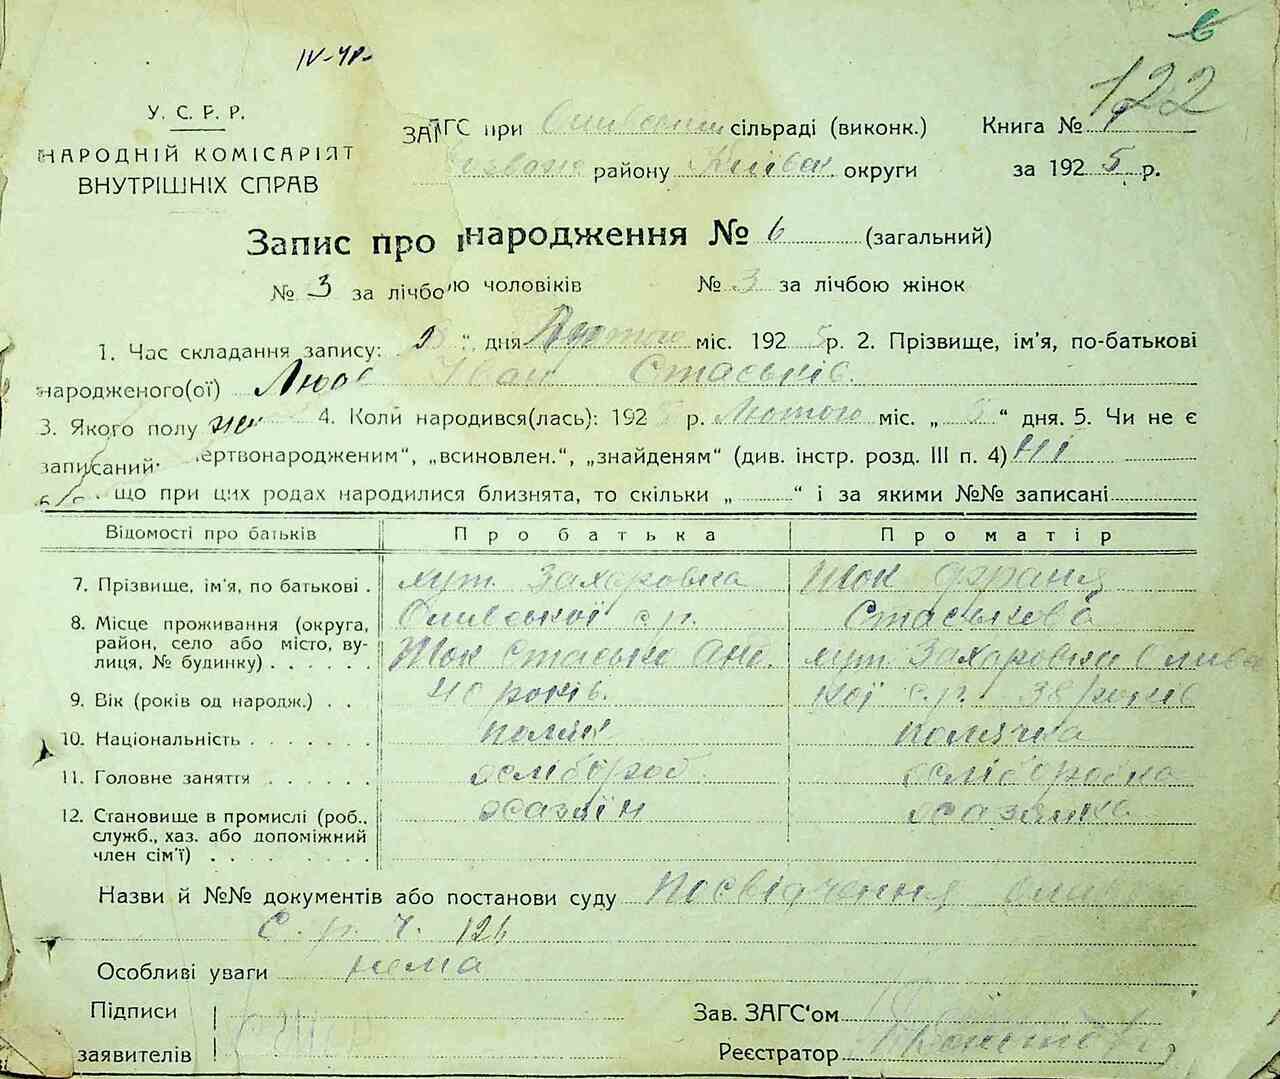 6
IV-41-
122
У. С. Р. Р.
НАРОДНІЙ КОМІСАРІЯТ
ВНУТРІШНІХ СПРАВ
ЗАГС при сільраді (виконк.) Книга №
району Київськ округи за 1925 р.
Запис про народження № 6 (загальний)
№ 3 за лічбою чоловіків № 3 за лічбою жінок
1. Час складання запису: " дня Лютого міс. 1925 р. 2. Прізвище, ім'я, по-батькові
народженого(ої) Стаськів.
3. Якого полу жін 4. Коли народився(лась): 1925 р. Лютого міс. „ 5 “ дня. 5. Чи не є
записаний: ертвонародженим“, „всиновлен.“, „знайденям“ (див. інстр. розд. III п. 4) Ні
що при цих родах народилися близнята, то скільки „ “ і за якими №№ записані
Відомості про батьків Про батька Про матір
7. Прізвище, ім'я, по батькові . хут. Захаровка Ток Франя
8. Місце проживання (округа, с.р. Стаськова
район, село або місто, ву-
лиця, № будинку) . . . . . Ток Стасько Анд. хут. Захаровка
9. Вік (років од народж.) . . 40 років. кої с.р. 38 років
10. Національність . . . . . . . поляк полячка
11. Головне заняття . . . . . . хлібороб хліборобка
12. Становище в промислі (роб., хазяїн хазяйка
служб., хаз. або допоміжний
член сім'ї) . . . . . . . .
Назви й №№ документів або постанови суду Посвідчення
С. р. Ч. 126
Особливі уваги нема
Підписи Зав. ЗАГС'ом
заявителів Реєстратор